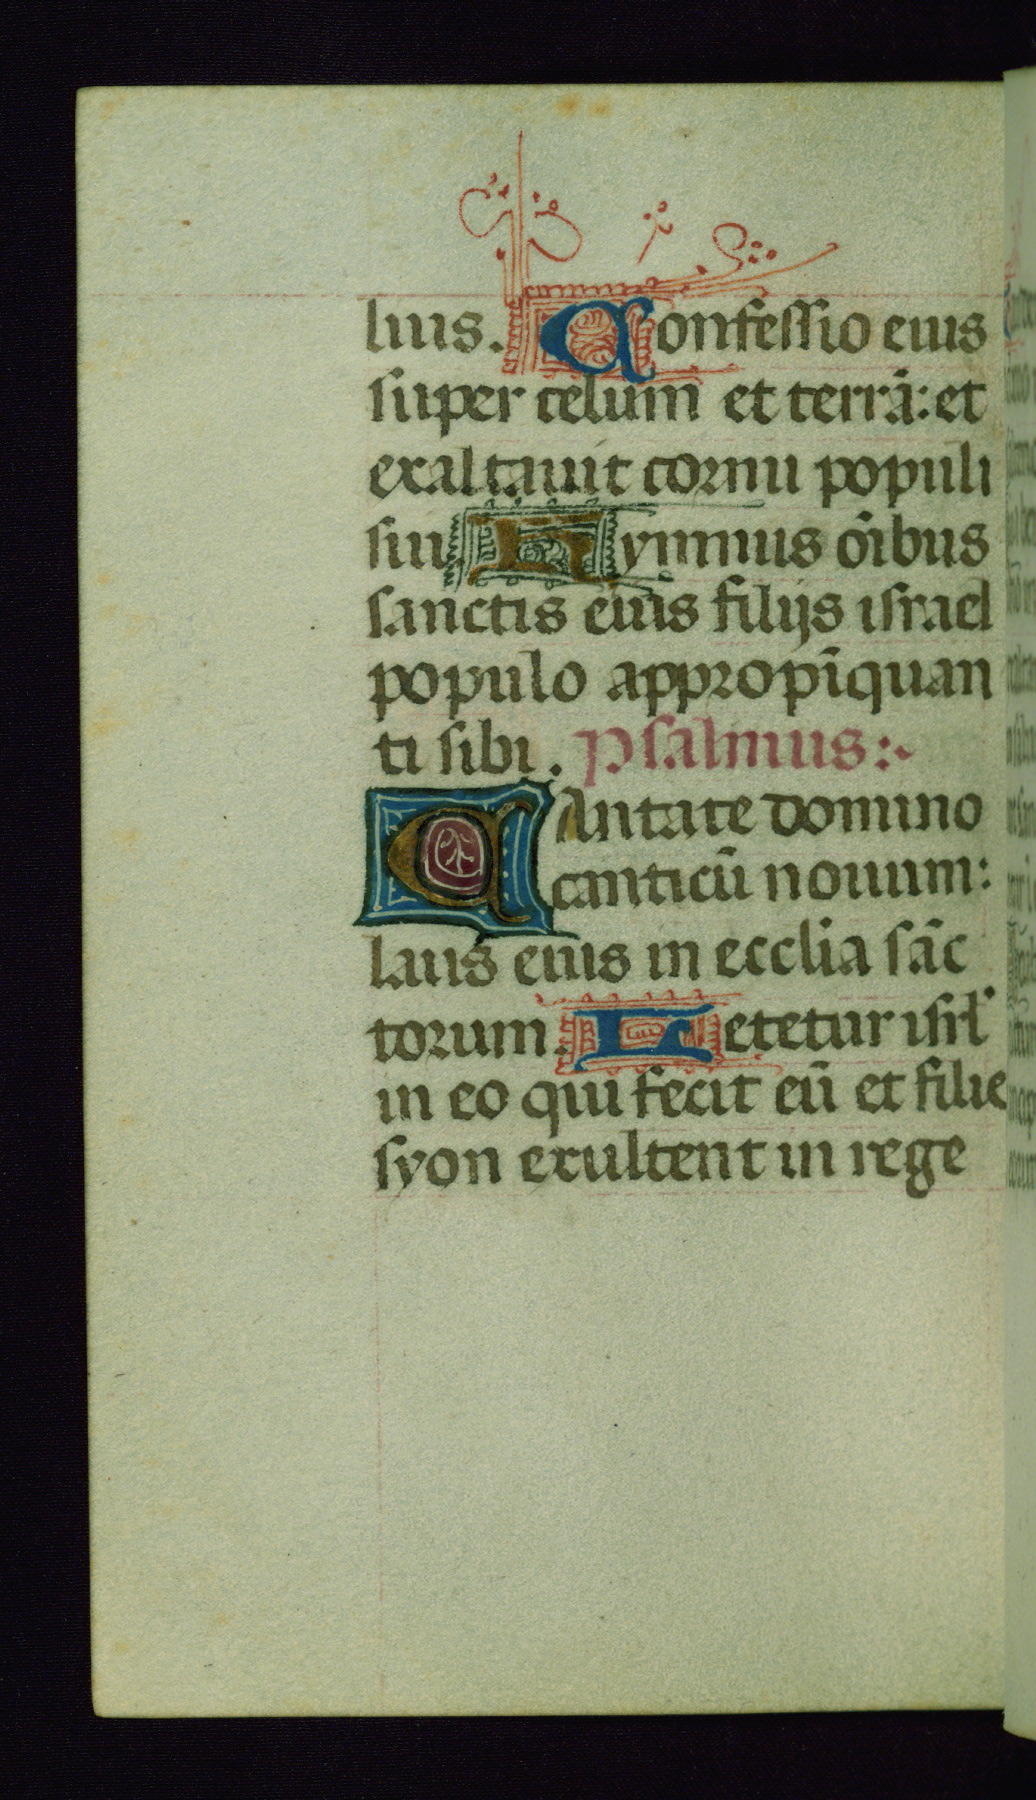 lius. Confessio eius
super celum et terrā: et
exaltauit cornu populi
sui. Hymnus oībus
sanctis eius filijs israel
populo appropīquan
ti sibi. psalmus:~
CAntate domino
canticū nouum:
laus eius in ecclia sāc
torum. Letetur isrl'
in eo qui fecit eū et filie
syon exultent in rege